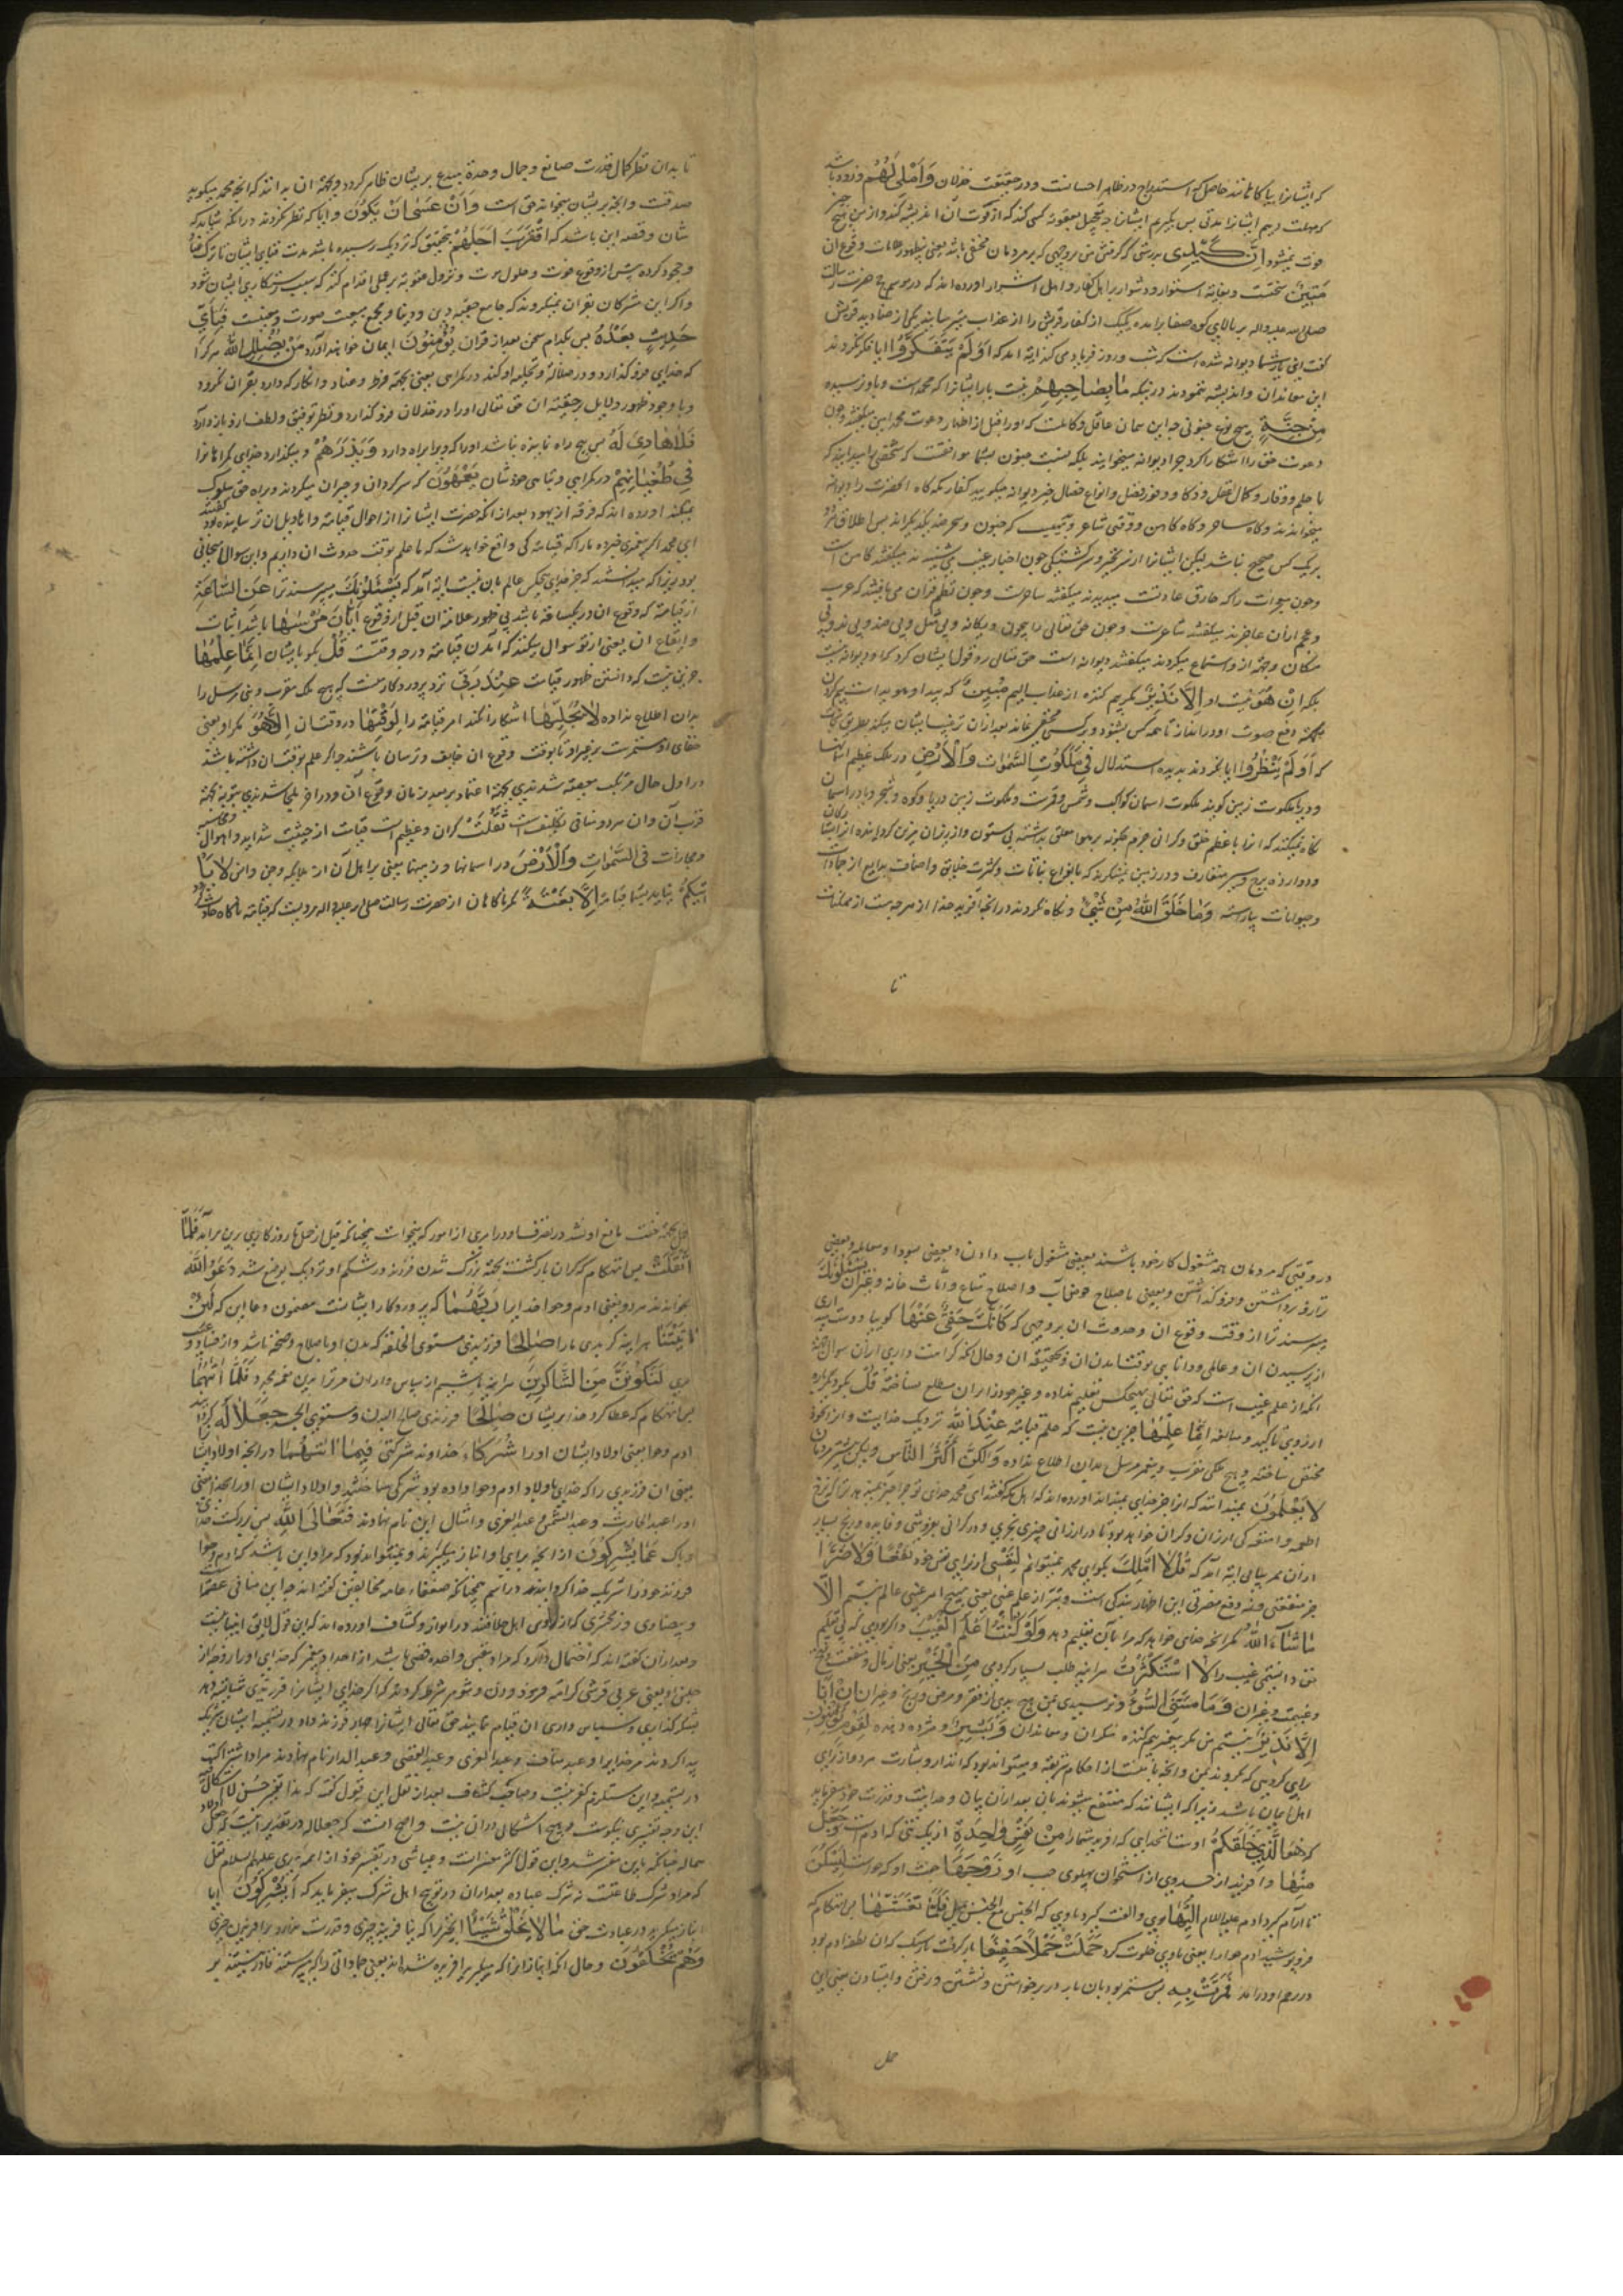 که ایشانرا بیاکاهانند حاصل که استدراج در ظاهر احسانست و در حقیقت خذلان وَاُمْلِی لَهُمْ و زود باشد
که مهلت دهم ایشانرا مدتی پس بکیریم ایشانرا چه تعجیل بعقوبة کسی کند که از فوت آن اندیشه کند و از من هیچ چیز
فوت نمیشود اِنَّ کَیْدِی بدرستی که کرفتن من بروجهی که بر مردمان مخفی باشد یعنی بی ظهور علامات وقوع ان
مَتِینٌ سختست و بغایة استوار و دشوار بر اهل کفار و اهل اشرار اورده اند که در موسم حج حضرت رسالت
صلی الله علیه واله بر بالای کوه صفا برامده یک یک از کفار قریش را از عذاب میترسانید یکی از صنادید قریش
کفت این یار شما دیوانه شده است که شب و روز فریاد می کند ایة امد که اَوَلَمْ یَتَفَکَّرُوا ایا فکر نکردند
این معاندان و اندیشه ننمودند در اینکه مٰا بِصٰاحِبِهِمْ نیست یار ایشانرا که محمد است و یا و نرسیده
مِنْ جِنَّةٍ هیچ نوع جنونی چه این سان عاقل و کاملست که اورا قبل از اظهار دعوت محمد امین میکفتند و چون
دعوت حق را اشکارا کرد چرا دیوانه میخوانید بلکه نسبت جنون بشما موافقست که شخصی را میدانید که
با حلم و وقار و کمال عقل و ذکا و وفور فضل و انواع خصال خیر دیوانه میکویید کفار مکه کاه انحضرت را دیوانه
میخواندند و کاه ساحر و کاه کاهن و وقتی شاعر و تعجیب که جنون و سحر ضد یکدیکراند پس اطلاق هر دو
بر یک کس صحیح نباشد لیکن ایشانرا از سر تحیر و سرکشتکی چون اخبار غیب می شنیدند میکفتند کاهن است
و چون معجزات را که خارق عادتست میدیدند میکفتند ساحرست و چون نظم قران می یافتند که عرب
و عجم از ان عاجزند میکفتند شاعرست و چون حق تعالی را بیچون و یکانه و بی مثل و بی ضد و بی ند و بی
مکان و جهة از او استماع میکردند میکفتند دیوانه است حق تعالی رد قول ایشان کرد که او دیوانه نیست
بلکه اِنْ هُوَ نیست او اِلّٰا نَذِیرٌ مکر بیم کننده از عذاب الیم مُبِینٌ که پیدا و هویداست بیم کردن
بجهة رفع صوت او در انذار تا همه کس بشنود و بر کسی مخفی نماند بعد از ان ترغیب ایشان میکند بطریق نجات
که اَوَلَمْ یَنْظُرُوا ایا نظر نکردند بدیده استدلال فِی مَلَکُوتِ السَّمٰوٰاتِ وَالْاَرْضِ در ملک عظیم اسمانها
و زمینها ملکوت زمین کویند ملکوت اسمان کواکب و شمس و قمرست و ملکوت زمین دریا و کوه و شجر و یا در اسمان
نکاه نمیکنند که انرا با عظم خلق و کرانی جرم چکونه بر هوا معلق بداشته بی ستون و از زیر زمان مزین کردانیده از انشا
و دوازده برج و سیر متفاوت و در زمین بنکرید که بانواع نباتات و کثرت خلایق و اصناف بدایع از جمادات
و حیوانات بیاراسته وَمٰا خَلَقَ اللّٰهُ مِنْ شَیْءٍ و نکاه نکردند در انچه افرید خدا از هر چه هست از ممکنات
تا
تا بدان نظر کمال قدرت صانع و جمال وحدة مبدع بر ایشان ظاهر کردد و بجهة ان بدانند که انچه محمد میکوید
صدقست و انچه بر ایشان میخواند حق است وَاَنْ عَسٰی اَنْ یَکُونَ و ایا که نظر نکردند در انکه شاید که
شان و قصه این باشد که اقْتَرَبَ اَجَلُهُمْ بتحقیق که نزدیک رسیده باشد مدت فنای ایشان تا ترک کفر
و جحود کرده پیش از وقوع فوت و حلول موت و نزول عقوبة بر عملی اقدام کنند که سبب رستکاری ایشان شود
و اکر این مشرکان بقران نمیکروند که جامع حجتهٔ دین و دنیا و مجمع صورت و معنیست فَبِاَیِّ
حَدِیثٍ بَعْدَهُ پس بکدام سخن بعد از قران یُؤْمِنُونَ ایمان خواهند آورد مَنْ یُضْلِلِ اللّٰهُ هر که را
که خدای فرو کذارد و در ضلالة و تخلیه او کند در کمراهی یعنی بجهة فرط و عناد و انکار که دارد بقران نکرود
و با وجود ظهور دلایل بر حقیقة ان حق تعالی اورا در خذلان فرو کذارد و نظر توفیق و لطف از و باز دارد
فَلٰا هٰادِیَ لَهُ پس هیچ راه نماینده نباشد اورا که ویرا براه دارد وَیَذَرُهُمْ و میکذارد خدای کمراهانرا
فِی طُغْیٰانِهِمْ در کمراهی و تباهی خودشان یَعْمَهُونَ که سرکردان و حیران میکردند و براه حق سلوک
نمیکنند اورده اند که فرقه از یهود بعد از انکه حضرت ایشانرا از احوال قیامة و اهاویل ان ترسانیده بود کفتند
ای محمد اکر پیغمبری خبر ده مارا که قیامة کی واقع خواهد شد که ما علم بوقت حدوث ان داریم و این سوال امتحانی
بود زیرا که میدانستند که جز خدای هیچکس عالم بان نیست ایة آمد که یَسْئَلُونَکَ میپرسند ترا عَنِ السّٰاعَةِ
از قیامة که وقوع ان در یکساعة باشد بی ظهور علامة ان قبل از وقوع اَیّٰانَ مُرْسٰیهٰا کی باشد اثبات
و ایقاع ان یعنی از تو سوال میکنند که آمدن قیامة در چه وقتست قُلْ بکو با ایشان اِنَّمٰا عِلْمُهٰا
جز این نیست که دانستن ظهور قیامت عِنْدَ رَبِّی نزد پروردکار منست که هیچ ملک مقرب و نبی مرسل را
بدان اطلاع نداده لٰا یُجَلِّیهٰا اشکارا نکند امر قیامة را لِوَقْتِهٰا در وقت ان اِلّٰا هُوَ مکر او یعنی
خفای او مستمرست بر غیر او تا بوقت وقوع ان خایف و ترسان باشند چه اکر علم بوقت ان داشته باشند
در اول حال مرتکب معصیة شدندی بجهة اعتماد بر بعید زمان وقوع ان و در اخر ملجا شدندی بتوبه بجهة
قرب آن و ان هر دو منافی تکلیفست ثَقُلَتْ کران و عظیم است قیامت از حیثیت شداید و اهوال و محاسبه
و مجازات فِی السَّمٰوٰاتِ وَالْاَرْضِ در اسمانها و زمینها یعنی بر اهل آن از ملایکه و جن و انس لٰا تَأْ
تِیکُمْ نیاید بشما قیامة اِلّٰا بَغْتَةً مکر ناکاهان از حضرت رسالت صلی الله علیه واله مرویست که قیامة ناکاه حادث شود
در وقتی که مردمان همه مشغول کار خود باشند بعضی مشغول باب دادن و بعضی بسودا و معامله و بعضی
ترازو برداشتن و فرو کذاشتن و بعضی باصلاح حوض آب و اصلاح متاع و اثاث خانه و غیر ان یَسْئَلُونَکَ
میپرسند ترا از وقت وقوع ان و حدوث ان بروجهی که کَاَنَّکَ حَفِیٌّ عَنْهٰا کویا دوست میداری
از پرسیدن ان و عالمی و دانایی بوقت امدن ان و بحقیقة ان و حال انکه کراهت داری از ان سوال بجهة
انکه از علم غیب است که حق تعالی بهیچکس تعلیم نداده و غیر خود را بر ان مطلع نساخته قُلْ بکو دیکرباره
از روی تاکید و مبالغه اِنَّمٰا عِلْمُهٰا جز این نیست که علم قیامة عِنْدَ اللّٰهِ نزدیک خدایست و از انخود
مختص ساخته و هیچ ملکی مقرب و پیغمبر مرسل بدان اطلاع نداده وَلٰکِنَّ اَکْثَرَ النّٰاسِ و لیکن بیشتر مردمان
لٰا یَعْلَمُونَ نمیدانند که انرا جز خدای نمیداند اورده اند که اهل مکه کفتند ای محمد خدای تو چرا خبر نمیدهد ترا که نرخ
اطعمه و امتعه کی ارزان و کران خواهد بود تا در ارزانی چیزی بخری و در کرانی بفروشی و فایده و ربح بسیار
از ان بر بیابی ایة آمد که قُلْ لٰا اَمْلِکُ بکو ای محمد نمیتوانم لِنَفْسِی از برای نفس خود نَفْعًا وَلٰا ضَرًّا
جز منفعتی و نه دفع مضرتی این اظهار بندکی است و تبرا از علم غیب یعنی بهیچ امر غیبی عالم نیستم اِلّٰا
مٰا شٰاءَ اللّٰهُ مکر انچه خدای خواهد که مرا بآن تعلیم دهد وَلَوْ کُنْتُ اَعْلَمُ الْغَیْبَ و اکر بودمی که بی تعلیم
حق دانستمی غیب را لٰاسْتَکْثَرْتُ هراینه طلب بسیار کردمی مِنَ الْخَیْرِ یعنی از مال و منفعت و فتح
و غنیمت و غیر ان وَمٰا مَسَّنِیَ السُّوءُ و نرسیدی بمن هیچ بدی از فقر و مرض و رنج و غیر ان اِنْ اَنَا
اِلّٰا نَذِیرٌ نیستم من مکر پیغمبر بیم کننده منکران و معاندان وَبَشِیرٌ و مژده دهنده لِقَوْمٍ یُؤْمِنُونَ
برای کروهی که بکروند بمن و انچه با منست از احکام شریعة و میتواند بود که انذار و بشارت هر دو از برای
اهل ایمان باشد زیرا که ایشانند که منتفع میشوند بان بعد از ان بیان وحدانیت و قدرت خود میفرماید
که هُوَ الَّذِی خَلَقَکُمْ اوست انخدای که افرید شما را مِنْ نَفْسٍ وٰاحِدَةٍ از یک تنی که ادم است وَجَعَلَ
مِنْهٰا و افرید از جسد وی از استخوان پهلوی چپ او زَوْجَهٰا جفت او که حواست لِیَسْکُنَ
تا ارام کیرد ادم علیه السلام اِلَیْهٰا بوی و الفت کیرد باوی که الجنس مع الجنس یمیل فَلَمّٰا تَغَشّٰیهٰا پس انهنکام که
فرو پوشید ادم حوا را یعنی باوی خلوت کرد حَمَلَتْ حَمْلًا خَفِیفًا بار کرفت باری سبک که ان نطفه ادم بود
در رحم او در امد فَمَرَّتْ بِهِ پس مستمر بود بان بار در برخواستن و نشستن و رفتن و ایستادن یعنی این
حمل
حمل بجهة خفت مانع او نشد در تصرفات در امری از امور که میخواست همچنانکه قبل از حمل تا روزکاری برین برآید فَلَمّٰا
اَثْقَلَتْ پس انهنکام که کران بار کشت بجهة بزرک شدن فرزند در شکم او و نزدیک بوضع شد دَعَوَا اللّٰهَ
بخواندند هر دو یعنی ادم و حوا خدایرا رَبَّهُمٰا که پروردکار ایشانست مضمون دعا این که لَئِنْ
اٰتَیْتَنٰا هراینه که بدهی مارا صٰالِحًا فرزندی مستوی الخلقه که بدن او با صلاح و صحة باشد و از فساد و عیب
بری لَنَکُونَنَّ مِنَ الشّٰاکِرِینَ هراینه باشیم از سپاس داران مر ترا برین نعمة مجرد فَلَمّٰا اٰتٰیهُمٰا
پس انهنکام که عطا کرد خدا بر ایشان صٰالِحًا فرزندی صالح البدن و مستوی الجسد جَعَلٰا لَهُ کردانیدند
ادم و حوا یعنی اولاد ایشان اورا شُرَکٰاءَ خداوند شرکتی فِیمٰا اٰتٰیهُمٰا در انچه اولاد ایشان
یعنی ان فرزندی را که خدای باولاد ادم و حوا داده بود شریکی ساختند و اولاد ایشان اورا بخدا یعنی
اورا عبدالحارث و عبدالشمس و عبدالعزی و امثال این نام نهادند فَتَعٰالَی اللّٰهُ پس بزرکست خدا
و پاک عَمّٰا یُشْرِکُونَ از انچه برای او انباز میکیرند و نمیتواند بود که مراد این باشد که ادم و حوا
فرزند خود را شریک خدا کردانیدند در اسم چنانکه ضعفاء عامه مخالفین کفته اند چه این منافی عصمة
و بیضاوی و زمخشری که از رؤسای اهل خلافند در انوار و کشاف اورده اند که این قول لایق انبیا نیست
و بعد از ان کفته اند که احتمال دارد که مراد بنفس واحده قصی باشد از اجداد پیغمبر که خدای اورا زوجه از
جنس او یعنی عربی قرشی کرامة فرمود و زن و شوهر شرط کردند که اکر خدای ایشانرا فرزندی شایسته دهد
بشکرکذاری و سپاس داری ان قیام نمایند حق تعالی ایشانرا چهار فرزند داد و در تسمیه ایشان شریک
پیدا کردند مر خدایرا و عبد مناف و عبدالعزی و عبدالقصی و عبدالدار نام نهادند مراد اشتراکست
در تسمیه و این مستلزم کفر نیست و صاحب کشاف بعد از نقل این قول کفته که هذا تفسیر حسن لا اشکال فیه
این وجه تفسیری نیکوست و هیچ اشکالی در ان نیست و اصح انست که جعلا له در تقدیر اینست که جعل اولاد
هما له چنانکه باین مفسر شد و این قول اکثر مفسرانست و عیاشی در تفسیر خود از ائمه هدی علیهم السلام نقل
که مراد شرک طاعتست نه شرک عباده بعد از ان در توبیخ اهل شرک میفرماید که اَیُشْرِکُونَ ایا
انباز میکیرند در عبادت حق مٰا لٰا یَخْلُقُ شَیْئًا انچیز را که نیافریند چیزی و قدرت ندارد بر افریدن چیزی
وَهُمْ یُخْلَقُونَ و حال انکه انبازانرا که میکیرند افریده شده اند یعنی جماداتی را که میپرستند قادر نیستند بر